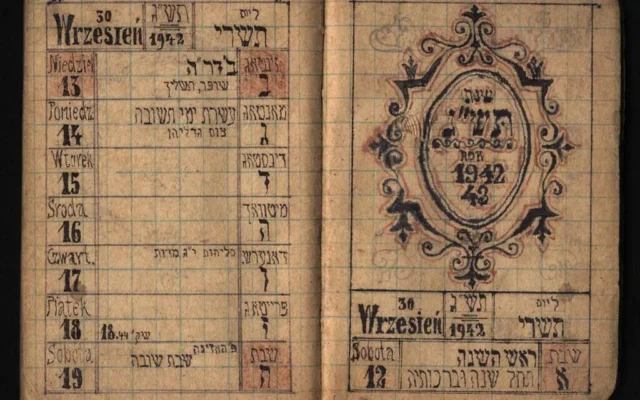 שנת
תש״ג
ROK
1942
43
30 תש״ג ליום
Wrzesień 1942 תשרי
Sobota ראש השנה שבת
12 תחל שנה וברכותיה א
30 תש״ג ליום
Wrzesień 1942 תשרי
Niedziel ב׳דר״ה זונטאג
13 שופר, תשליך ב
Poniedz עשרת ימי תשובה מאנטאג
14 צום גדליהו ג
Wtorek דינסטאג
15 ד
Środa מיטוואך
16 ה
Czwart. סליחות י״ג מדות דאנערש.
17 ו
Piątek פרייטאג
18 18.44 שקי׳ י
Sobota שבת
19 שבת שובה ח